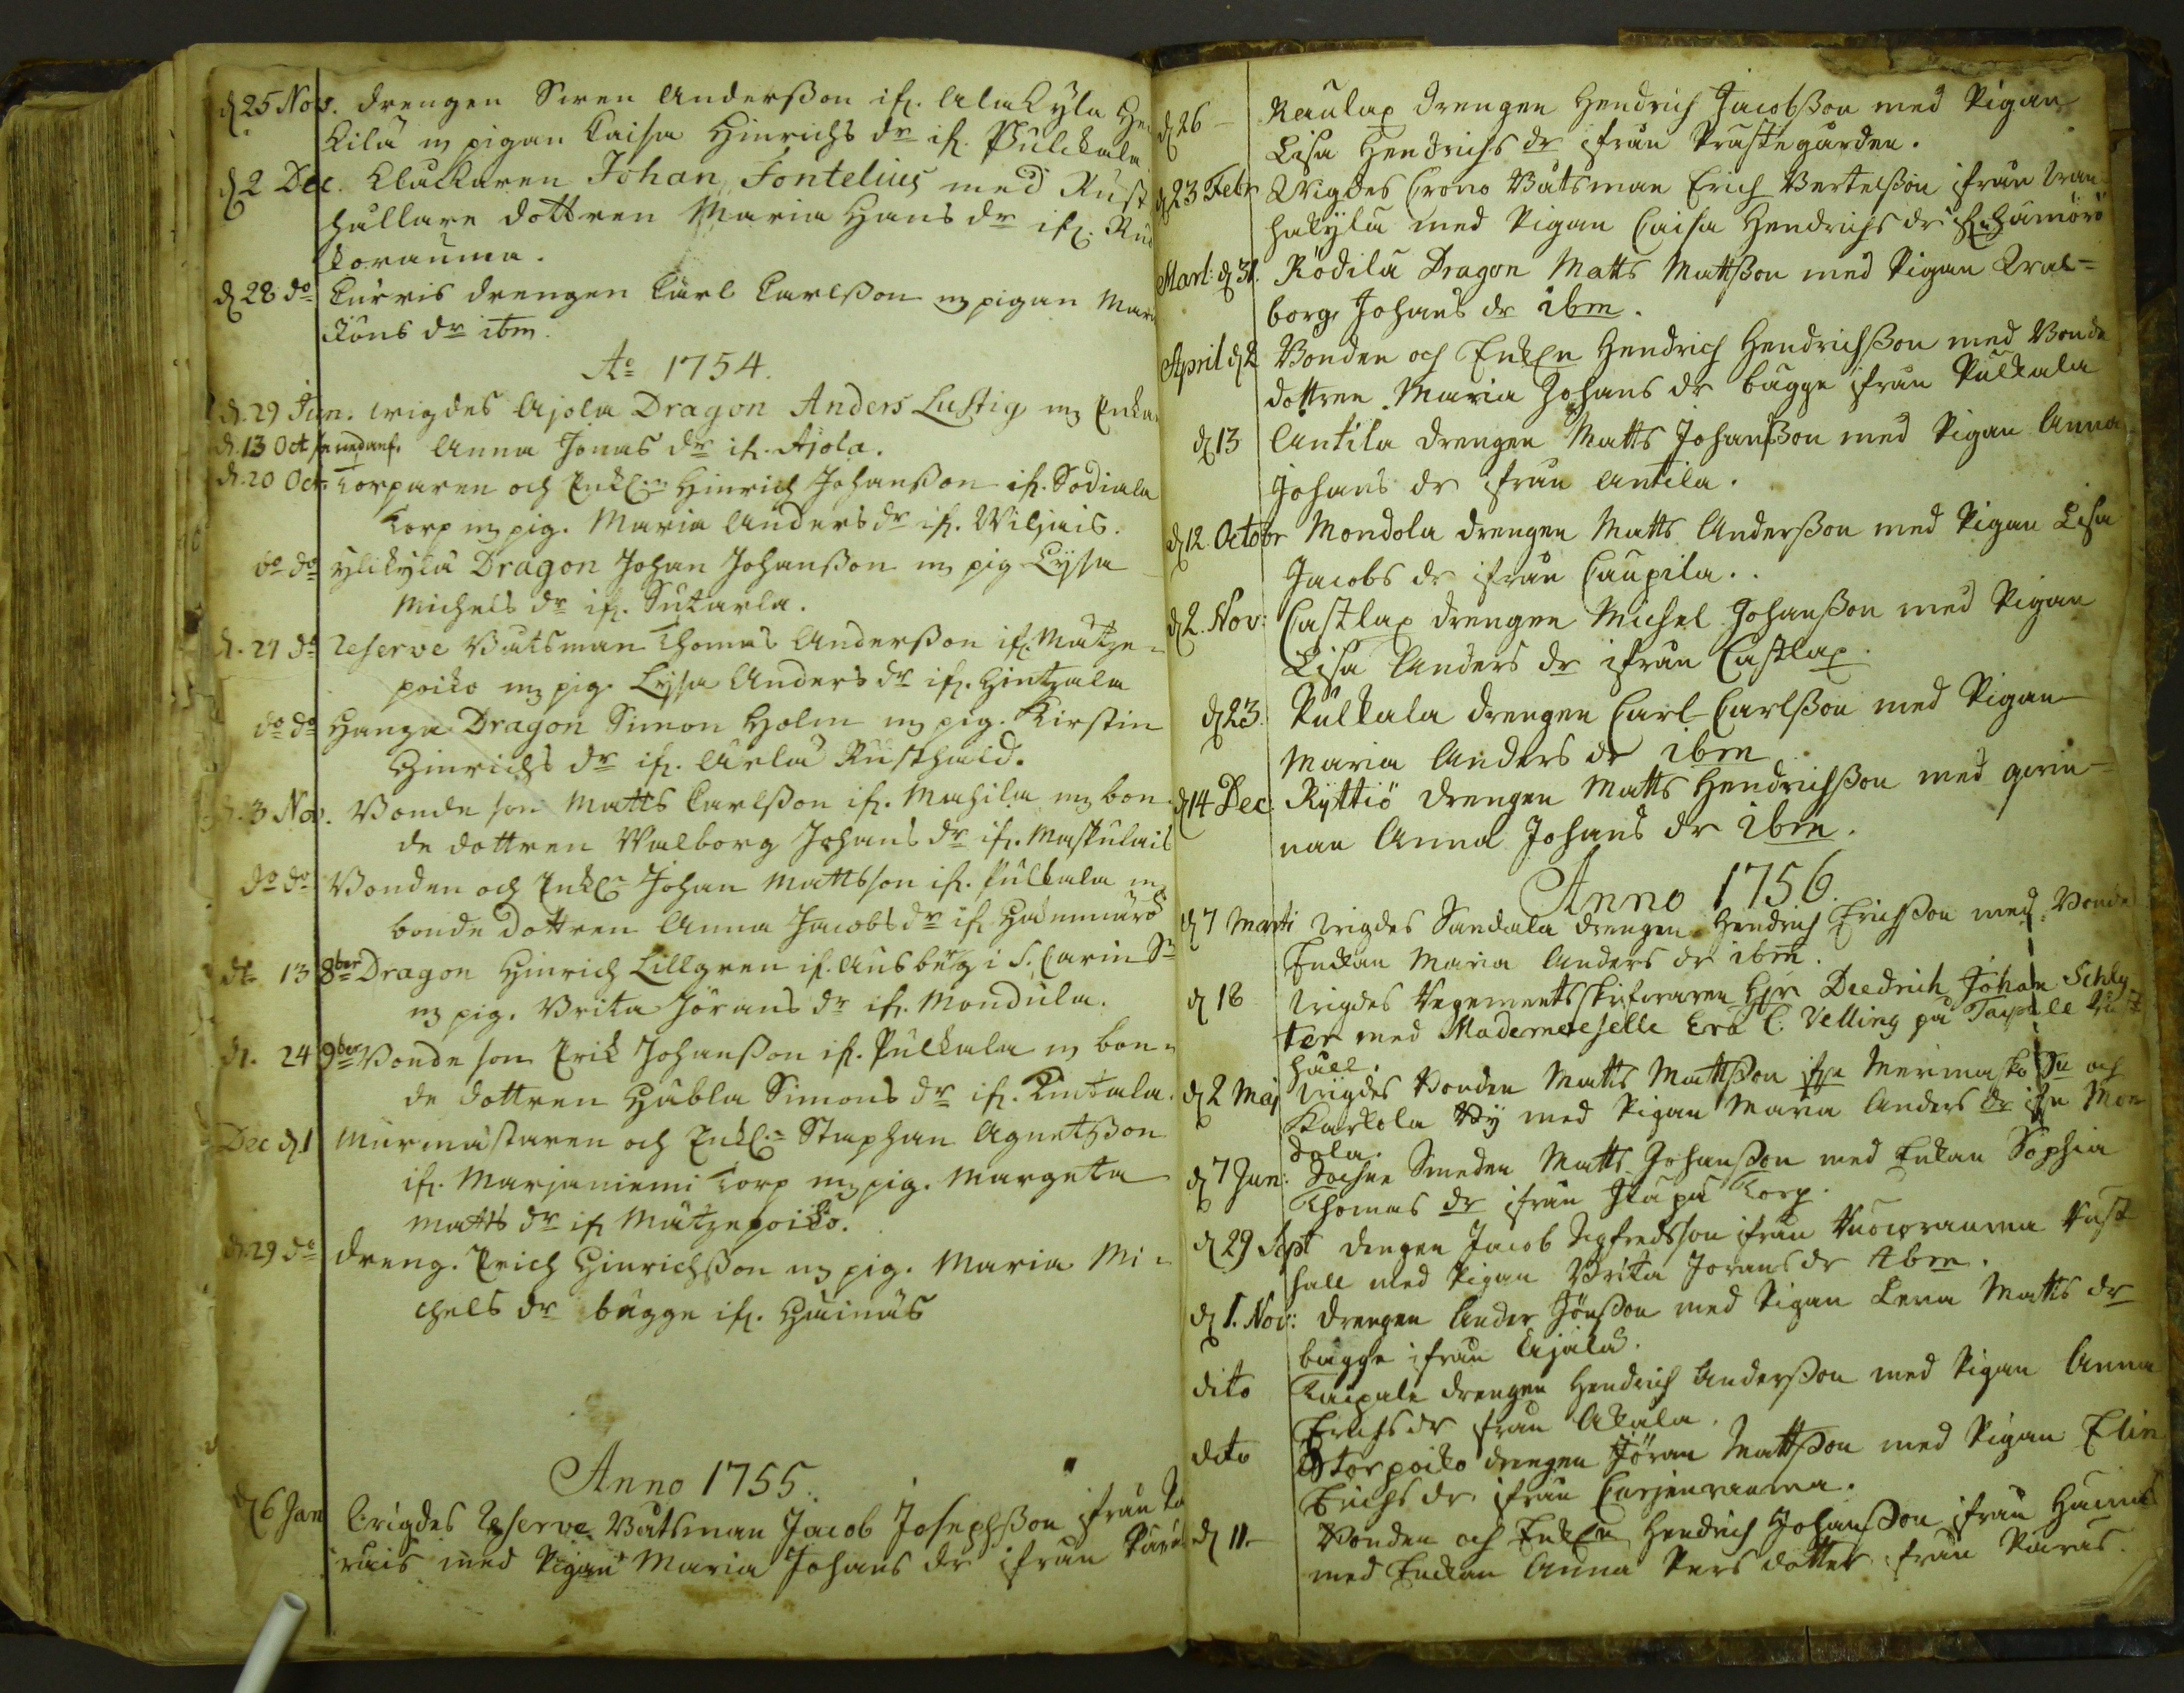 d. 25 Nov. drengen Sven Anderßon ifr. Alakyla
Kilä m pigan Caisa Hinrichs dr ifr. Pulckala
d. 2 Dec. Cluckaren Johan Fontelius med Rust
hållare dottren Maria Hans dr ifr.
korauma.
d. 28 do drengen Carl Carlßon m pigan
dr ibm.
Ao 1754.
d. 29 Jun. wigdes Ajola Dragon Anders Lustig m Enka
d. 13 Oct Anna Jonas dr ifr. Ajola.
d. 20 Oct. Torparen och Enkl: Hinrich Johanßon ifr. Sodiala
Torp m pig. Maria Anders dr ifr. Wiljais.
do do Ylikylä Dragon Johan Johanßon m pig Lysa
Michels dr ifr.
d. 27 do Reserve Båtsman Thomas Anderßon ifr. Mätze-
poiko m pig. Lysa Anders dr ifr. Hintzala
do do Dragon Simon Holm m pig. Kirstin
Hinrichs dr ifr. Rusthåld.
d. 3 Nov. Bonde son Matts Carlßon ifr. Mahila m bon-
de dottren Walborg Johans dr ifr. Maskulais
do do Bonden och Enkl: Johan Mattsson ifr. Pulkala m
bonde dottren Anna Jacobs dr ifr.
d. 13 8ber Dragon Hinrich Lillgren ifr. Ausberg i S. Carin Sn
m pig. Brita Jörans dr ifr. Mondula.
d. 24 9ber Bonde son Erik Johanßon ifr. Pulkala m bon-
de dottren Häbla Simons dr ifr. Kintala.
Dec d. 1 Murmästaren och Enkl: Staphan Agnetßon
ifr. Marjaniemi Torp m pig. Margeta
Matts dr ifr Mätzepoiko.
d. 29 do dreng. Erich Hinrichßon m pig. Maria Mi-
chels dr bägge ifr.
Anno 1755.
d 6 Jan Wigdes Reserve Båtsman Jacob Josephßon ifrån
rais med Pigan Maria Johans dr ifrån
d 26 – Raulax drengen Hendrich Jacobßon med Pigan
Lisa Hendrichs dr ifrån Prästegården.
d 23 Febr Wigdes Crono Båtsman Erich Bertelßon ifrån
hakylä med Pigan Caisa Hendrichs dr
Mart: d 31. Rödilä Dragon Matts Mattßon med Pigan Wal=
borg Johans dr ibm.
April d 2 Bonden och Enkln Hendrich Hendrichßon med Bonde
dottren Maria Johans dr bägge ifrån Pulkala
d 13 Antila drengen Matts Johanßon med Pigan Anna
Johans dr ifrån Antila.
d 12 Octobr Mondola drengen Matts Anderßon med Pigan Lisa
Jacobs dr ifrån Caupila.
d 2. Nov: Castlax drengen Michel Johanßon med Pigan
Lisa Anders dr ifrån Castlax.
d 23. Pulkala drengen Carl Carlßon med Pigan
Maria Anders dr ibm
d 14 Dec: Ryttiö drengen Matts Hendrichßon med qwin=
nan Anna Johans dr ibm.
Anno 1756.
d 7 Marti Wigdes Sandala drengen Hendrich Erichßon med Bonde
Enckan Maria Anders dr ibm.
d 18 Wigdes Regementsskrifwaren Hjr Diedrich Johan Schly
ter med Mademoiselle Eva C. Velling på Taipale Rust
håll.
d 2 Maj Wigdes Bonden Matts Mattßon ifrn och
Karkola By med Pigan Maria Anders dr ifrn Mon
dola.
d 7 Jun: Sochne Smeden Matts Johanßon med Enkan Sophia
Thomas dr ifrån Torp.
d 29 Sept drengen Jacob Sigfredsson ifrån Rust
håll med Pigan Brita Jorans dr Ibm.
d 1. Nov: drengen Anders Jönßon med Pigan Lena Matts dr
bägge ifrån Ajala.
dito Taipale drengen Hendrich Anderßon med Pigan Anna
Erichs dr ifrån Akala.
dito Storpoiko drengen Jöran Mattßon med Pigan Elin
Erichs dr ifrån
d 11. Bonden och Enkln Hendrich Johanßon ifrån
med Enckan Anna Pers dotter ifrån Paras.